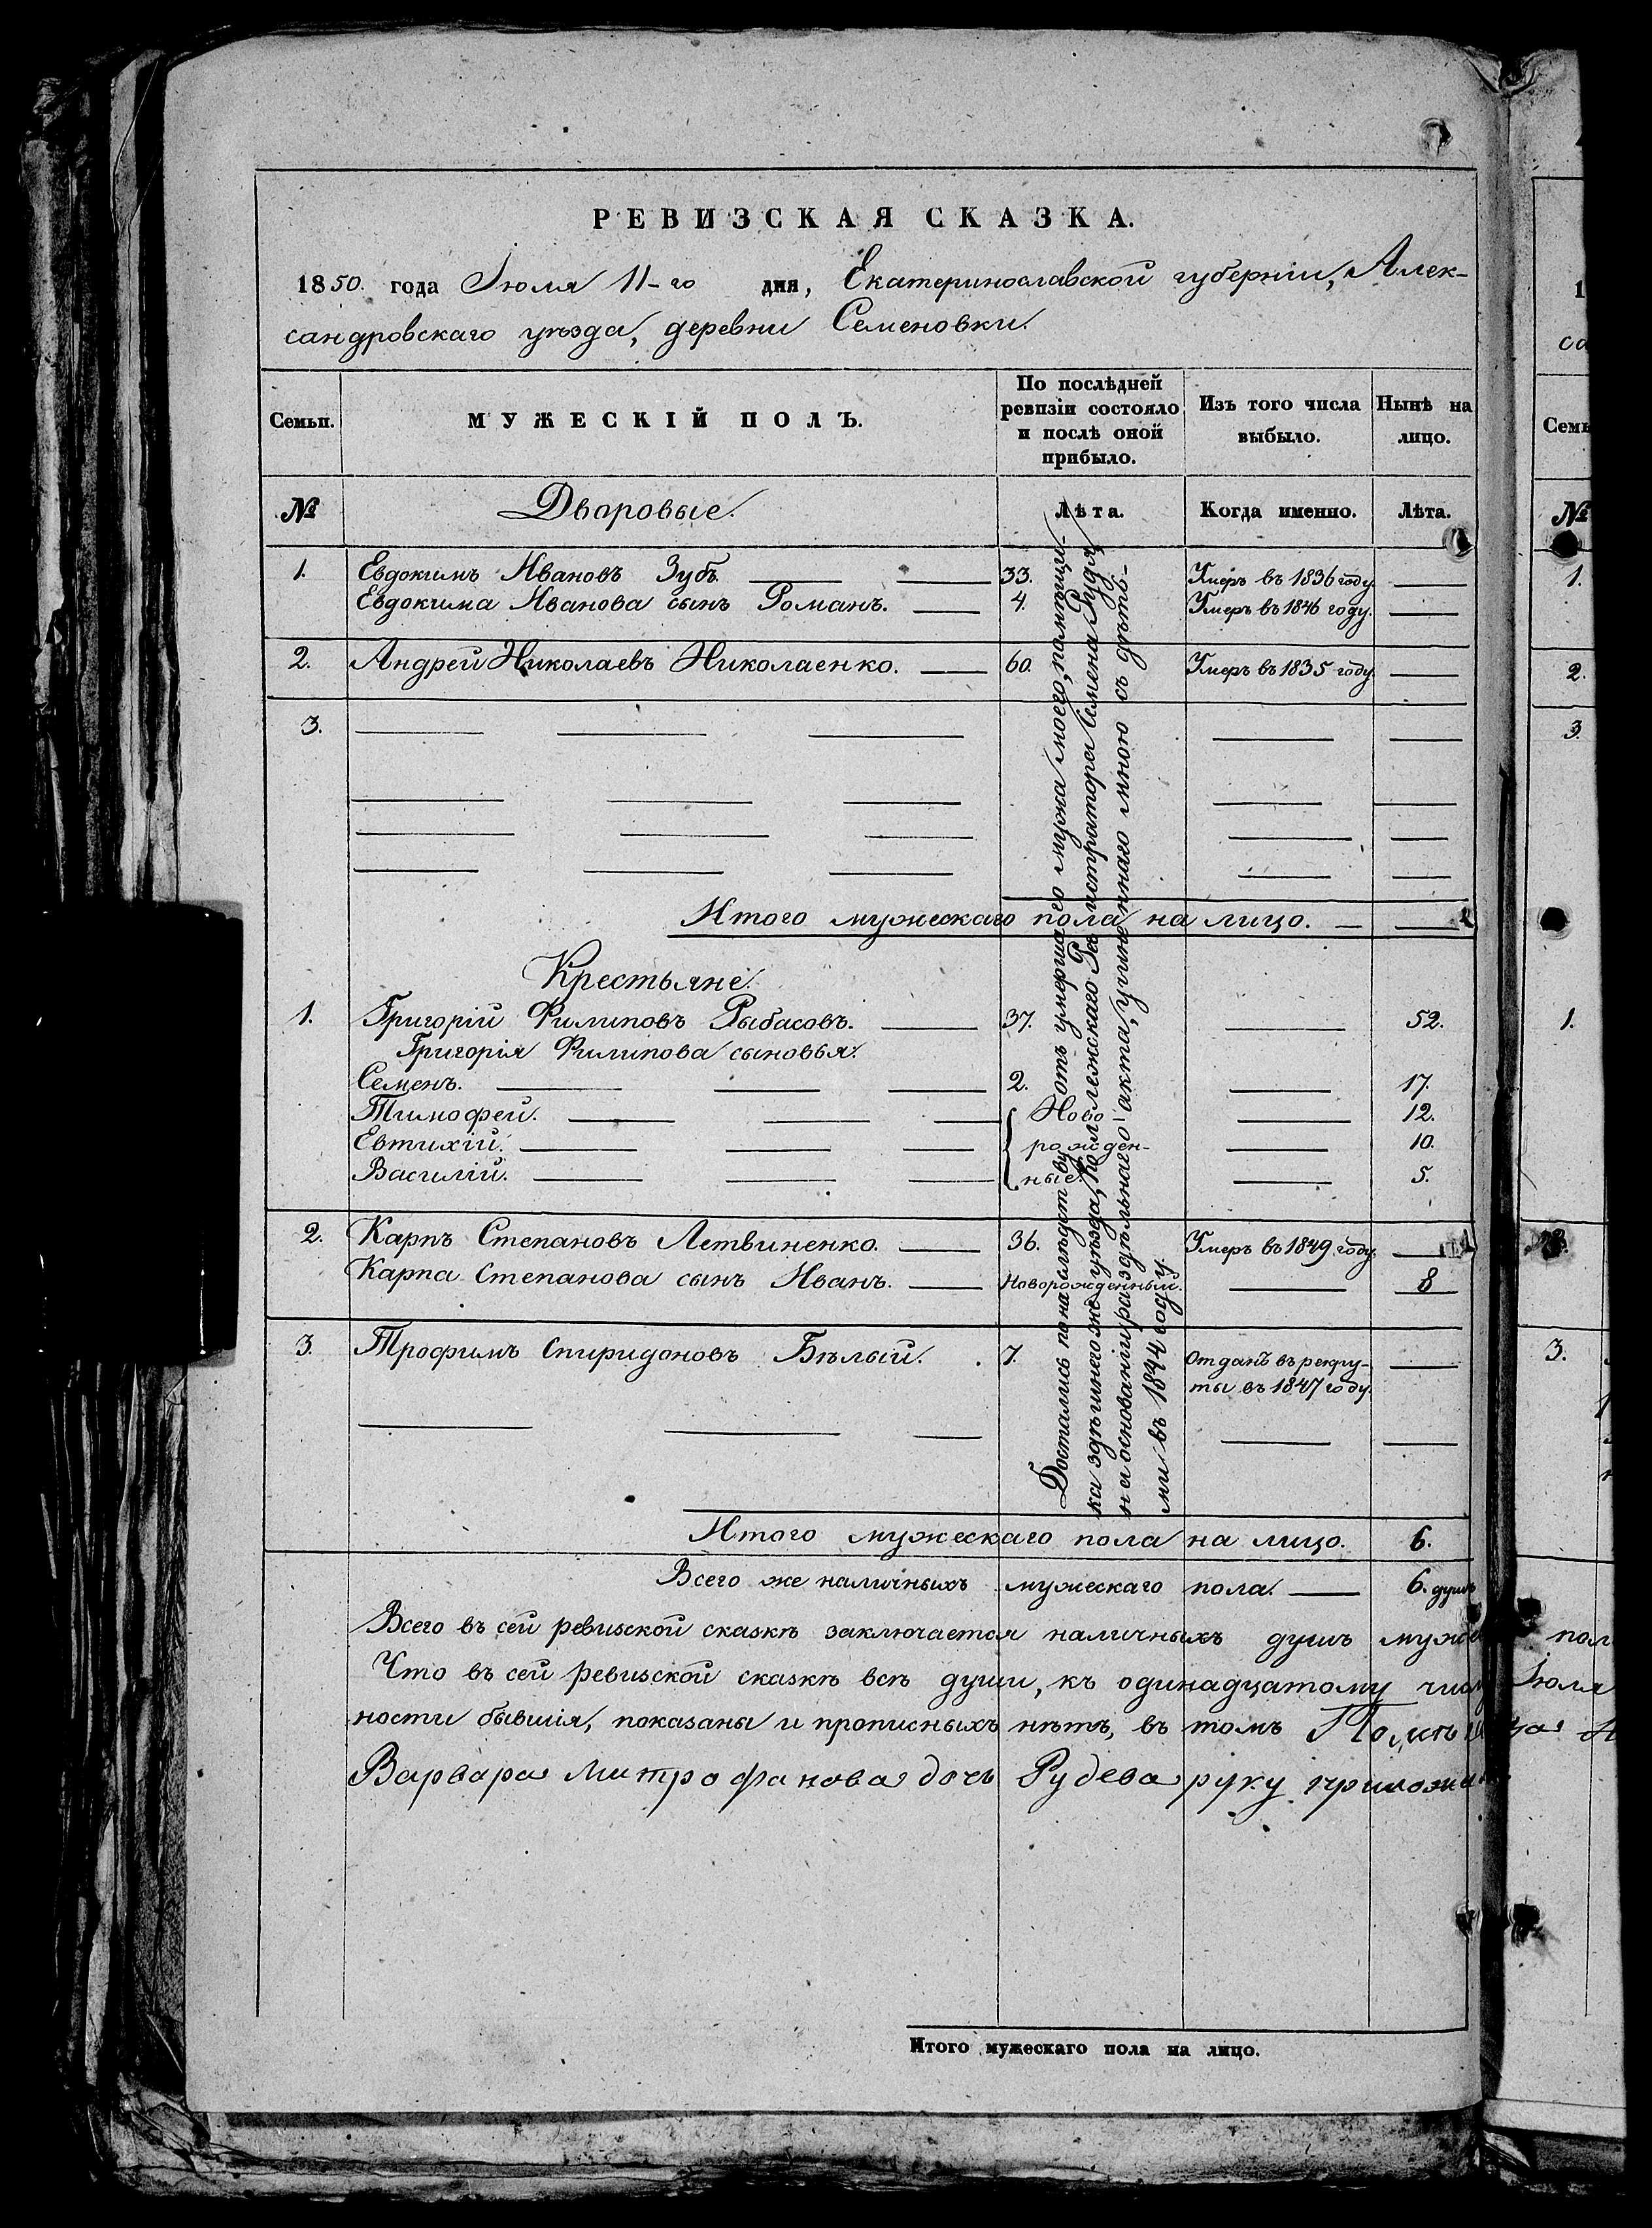 РЕВИЗСКАЯ СКАЗКА.
1850. года Іюля 11-го дня, Екатеринославской губерніи, Алек-
сандровскаго уѣзда, деревни Семеновки.
Семьи. МУЖЕСКІЙ ПОЛЪ. По послѣдней ревизіи состояло и послѣ оной прибыло. Изъ того числа выбыло. Нынѣ на лицо.
№ Дворовые. Лѣта. Когда именно. Лѣта.
1. Евдокимъ Ивановъ Зубъ. 33. Умеръ въ 1836 году.
Евдокима Иванова сынъ Романъ. 4. Умеръ въ 1846 году.
2. Андрей Николаевъ Николаенко. 60. Умеръ въ 1835 году.
3.
Итого мужескаго пола на лицо.
Крестьяне.
1. Григорій Филиповъ Рыбасовъ. 37. 52.
Григорія Филипова сыновья.
Семенъ. 2. 17.
Тимофей. Ново- 12.
Евтихій. рожден- 10.
Василій. ные. 5.
2. Карпъ Степановъ Летвиненко. 36. Умеръ въ 1849 году.
Карпа Степанова сынъ Иванъ. Новорожденный. 8
3. Трофимъ Спиридоновъ Бѣлый. 7. Отданъ въ рекру-
ты въ 1847 году.
Достались по наслѣдству отъ умершаго мужа моего, помѣщи-
ка здѣшнего же уѣзда, Коллежскаго Регистратора Семена Рудя,
на основаніи раздѣльнаго акта, учиненнаго мною съ дѣть-
ми въ 1844 году.
Итого мужескаго пола на лицо. 6.
Всего же наличныхъ мужескаго пола. 6. душъ
Всего въ сей ревизской сказкѣ заключается наличныхъ душъ муже пол
Что въ сей ревизской сказкѣ всѣ души, къ одинадцатому числу Іюля
ности бывшія, показаны и прописныхъ нѣтъ, въ томъ Помѣщица
Варвара Митрофанова дочь Рудева руку приложи
Итого мужескаго пола на лицо.
1
са
Семь
№
1.
2.
3.
1.
3.